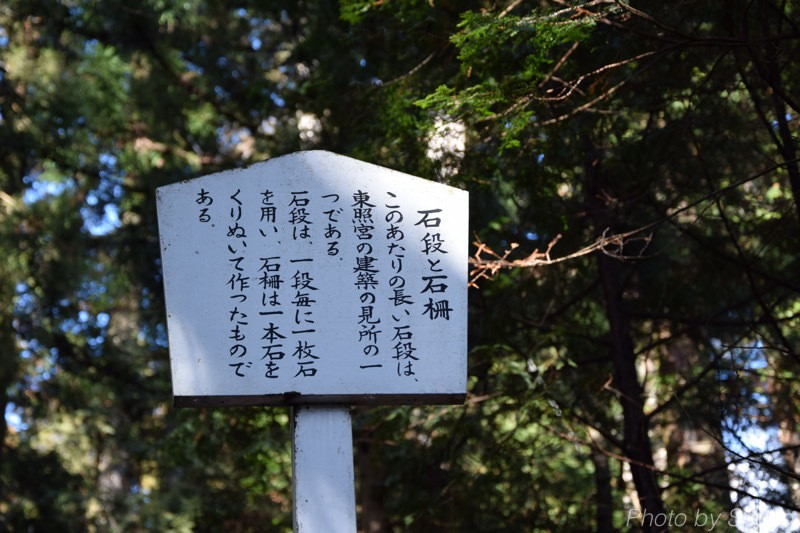 石段と石柵
このあたりの長い石段は、
東照宮の建築の見所の一
つである。
石段は、一段毎に一枚石
を用い、石柵は一本石を
くりぬいて作ったもので
ある。
Photo by